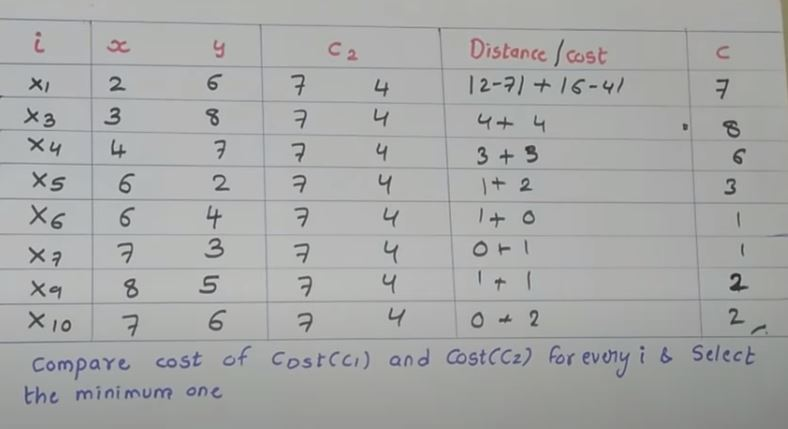 i x y C2 Distance/cost C
x1 2 6 7 4 |2-7|+|6-4| 7
x3 3 8 7 4 4+ 4 8
x4 4 7 7 4 3+3 6
x5 6 2 7 4 1+ 2 3
x6 6 4 7 4 1+ 0 1
x7 7 3 7 4 0+1 1
x9 8 5 7 4 1+ 1 2
x10 7 6 7 4 0+ 2 2
Compare cost of Cost(C1) and Cost(C2) for every i & Select
the minimum one